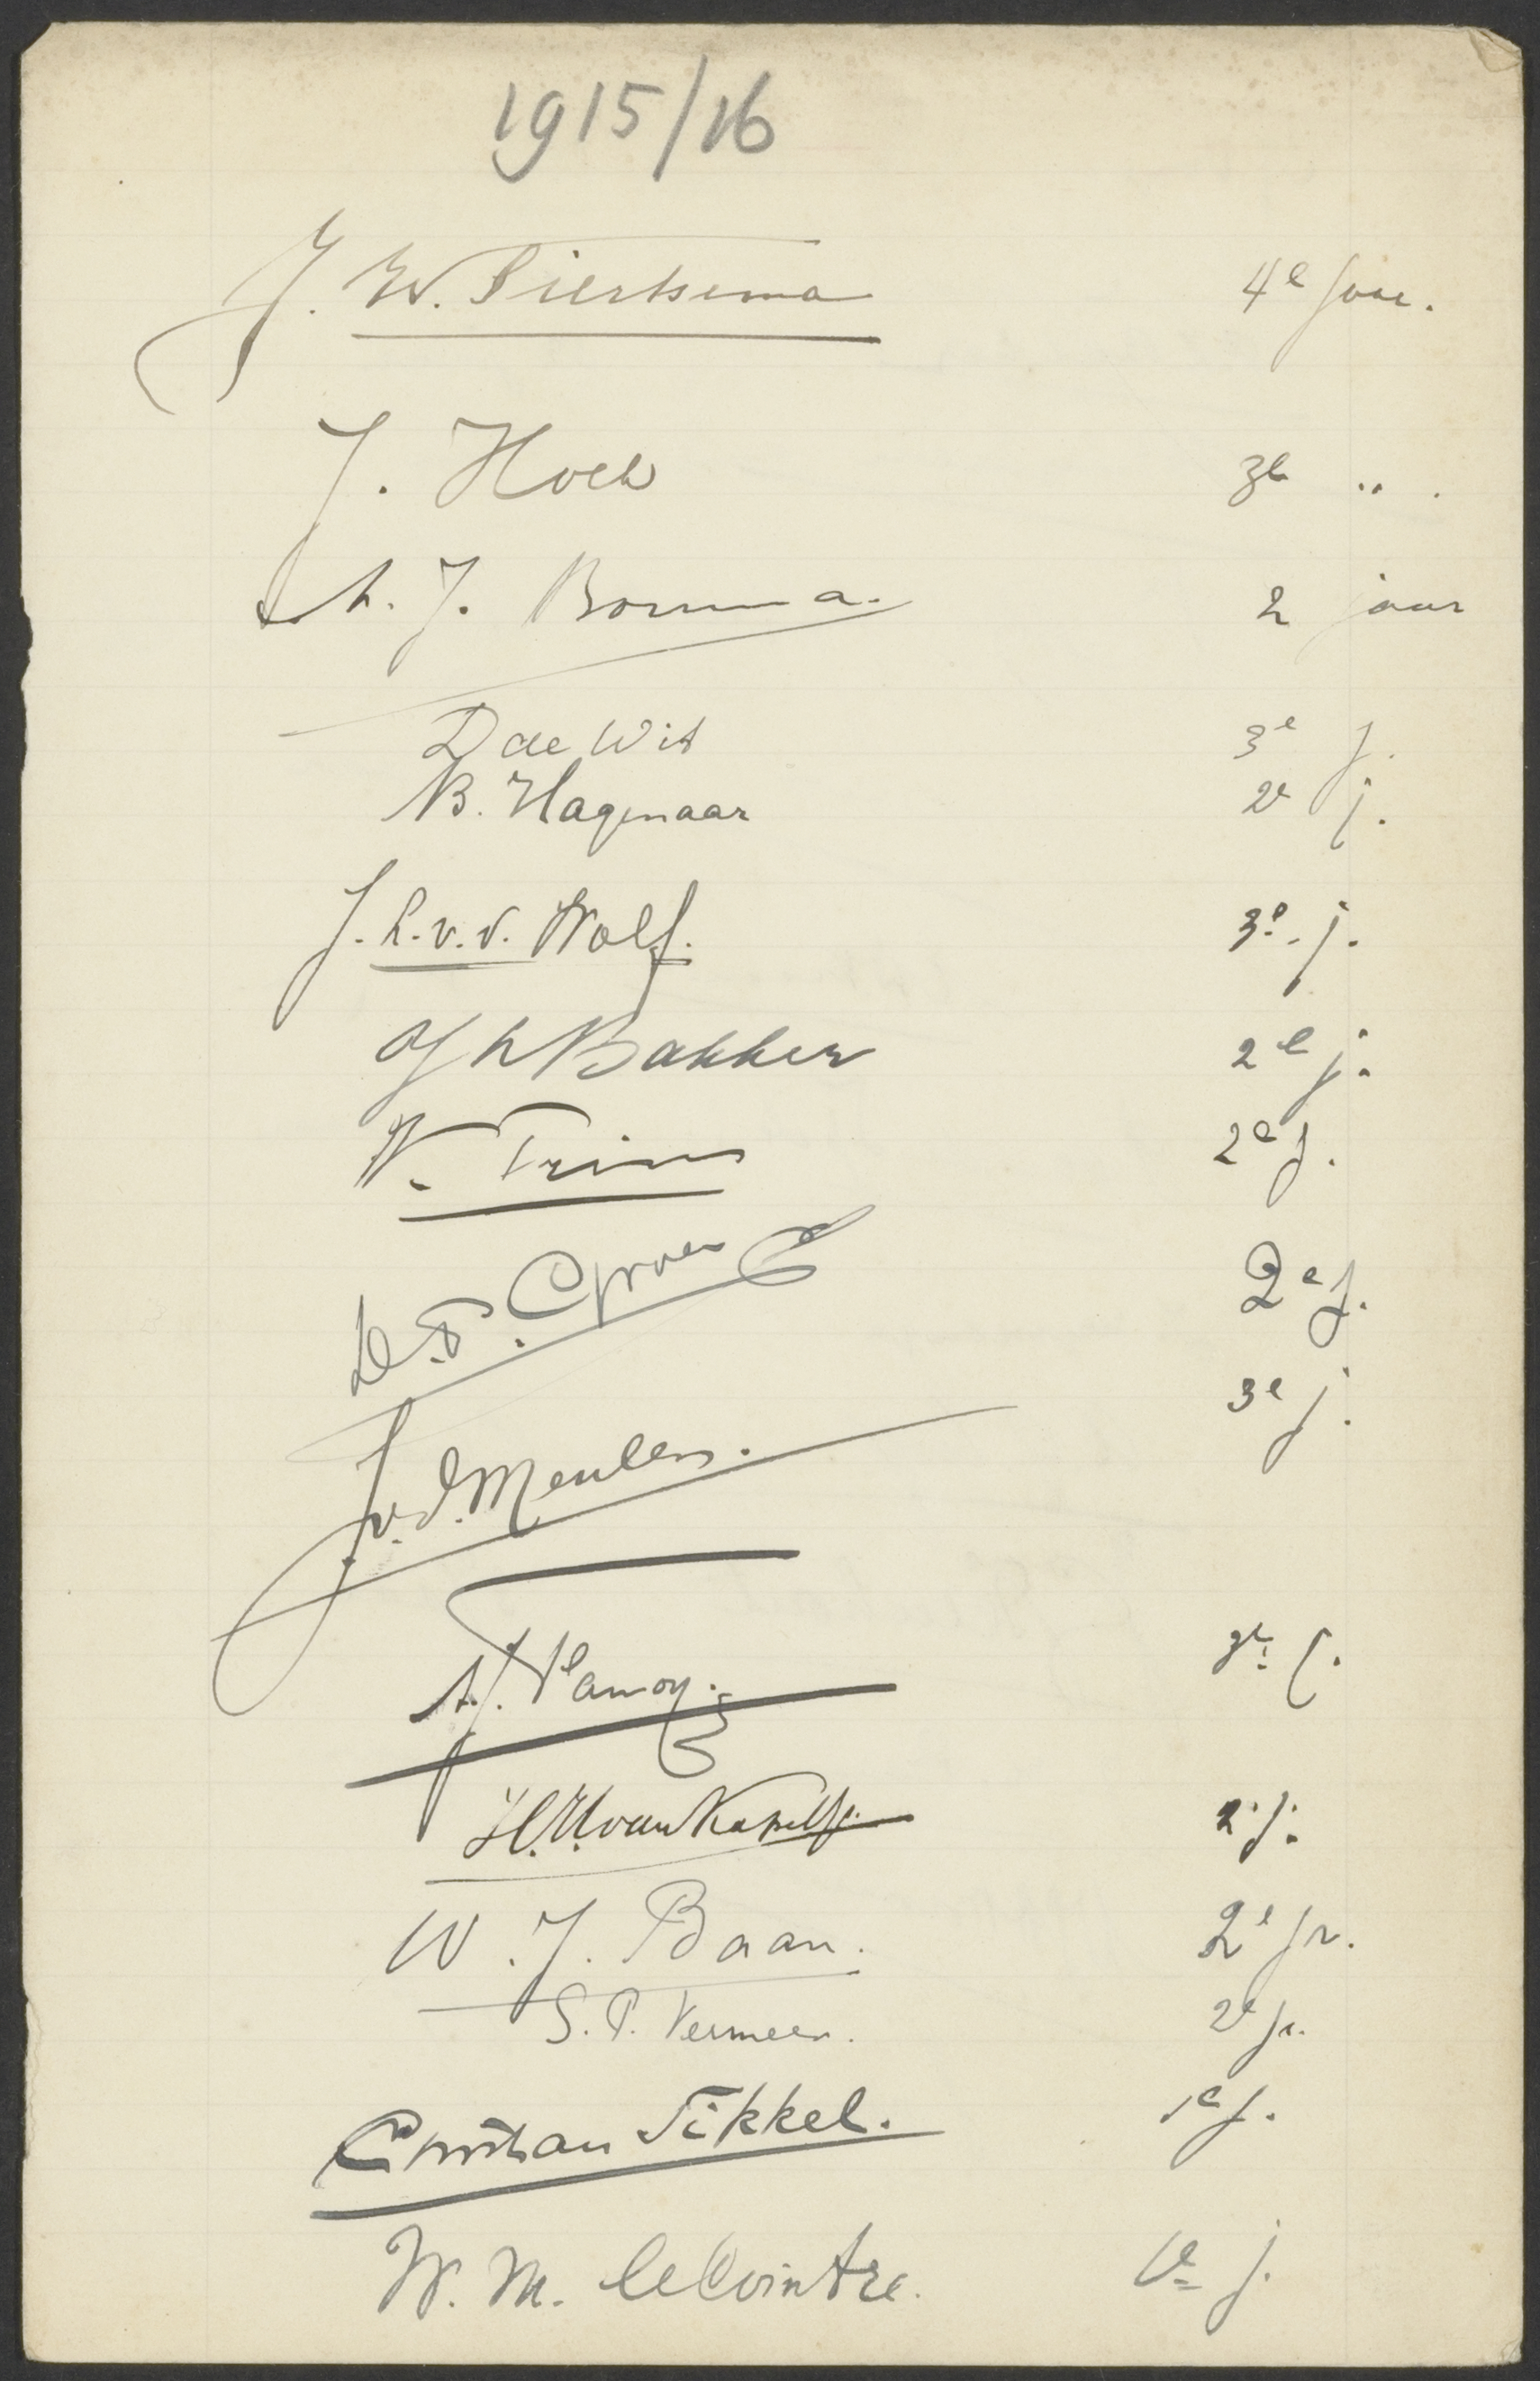 1915/16
J. W. Tiersema 4e jaar.
J. Hoek 3e " .
A. J. Bouma. 2 jaar
D de Wit 3e j.
B. Hagenaar 2e j.
J. h. v. d. Wolf. 3e. j.
Bakker 2e j.
2e j.
2e j.
J. v. d. Meulen. 3e j.
A. J. j.
H. M. van 2e j.
W. J. Baan. 2e jr.
S. P. Vermeer. 2e jr.
Tikkel. 1e j.
W. M. le Cointre. 1e j.